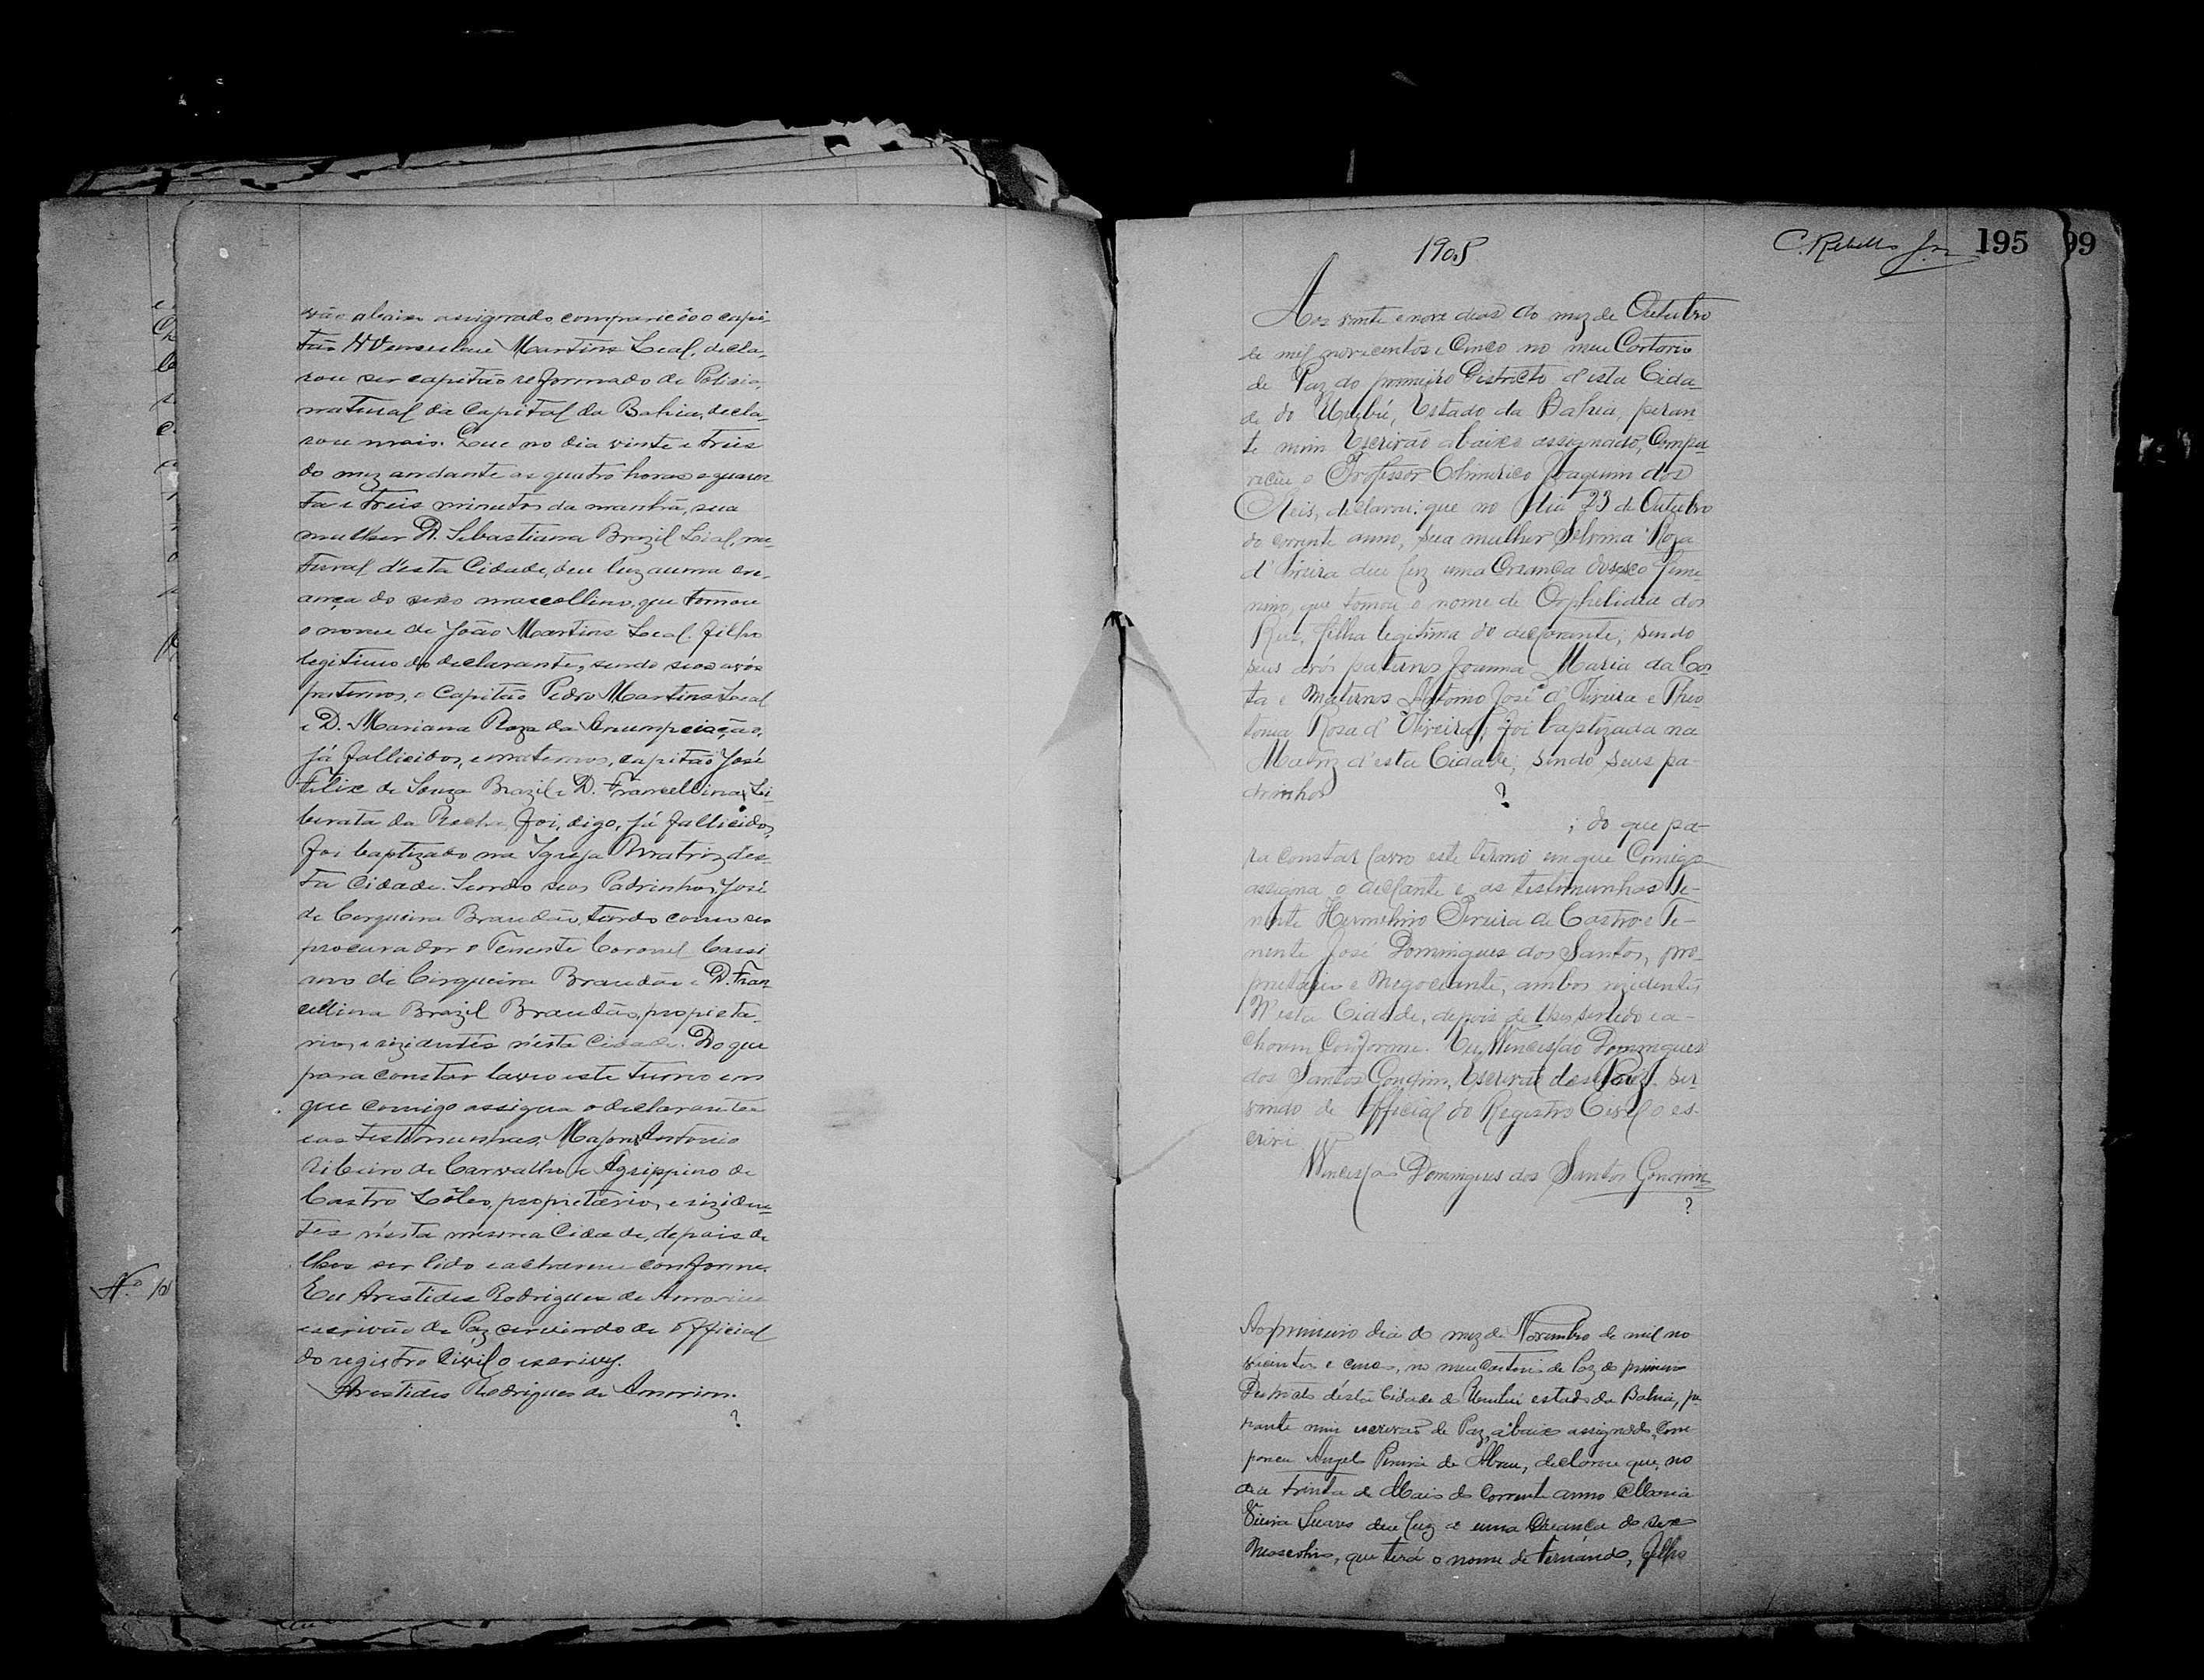 vão abaixo assignado, compareceo o capi-
tão Wenceslau Martins Leal, decla-
rou ser capitão reformado de Policia,
natural da Capital da Bahia, decla-
rou mais. Que no dia vinte e treis
do mez andante as quatro horas e quaren-
ta e treis minutos da manhã, sua
mulher D. Sebastiana Brazil Leal, na-
tural d'esta Cidade, deu luz a uma cre-
ança do sexo mascollino, que tomou
o nome de João Martins Leal. filho
legitimo do declarante, sendo seos avós
paternos, o Capitão Pedro Martins Leal
e D. Mariana Roza da Anumpciação,
já fallicidos, e maternos, capitão José
Felix de Souza Brazil e D. Francellina Li-
berata da Rocha, foi, digo, já fallicidos,
foi baptizado na Igreja Matriz des-
ta Cidade. Sendo seos Padrinhos, José
de Cerqueira Brandão, tendo como seo
procurador o Tenente Coronel Cassi
ano de Cirqueira Brandão e D. Fran-
cellina Brazil Brandão, propieta-
rios, e rizidentes n'esta Cidade. Do que
para constar lavro este termo em
que comigo assigna o declarante e
eas testemunhas, Major Antonio
Ribeiro de Carvalho e Agrippino de
Castro Lôleo, proprietario, e riziden-
tes n'esta mesma Cidade, depois de
lhes ser lido e acharem conforme.
Eu Arestides Rodrigues de Amorim
escrivão de Paz servindo de official
do registro Civil o escrivy.
Arestides Rodrigues de Amorim.
?
Nº
1905
C. Rebello Jor
195
99
Aos vinte e nove dias do mez de Outubro
de mil novecentos e Cinco no meu Cartorio
de Paz do primeiro Districto d'esta Cida-
de do Urubú, Estado da Bahia, peran-
te mim Escrivão abaixo assignado, Compa-
receu o Professor Joaquim dos
Reis, declarou: que no dia 23 de Outubro
do corrente anno, sua mulher Selvina Roza
d'Oliveira deu luz uma Creança do sexo femi-
nino, que tomou o nome de Orphelidia dos
Reis, filha legitima do declarante; sendo
seus avós paternos Joanna Maria da Cos-
ta e Maternos Antonio José d'Oliveira e Theo
tonia Rosa d'Oliveira; foi baptizada na
Matriz d'esta Cidade; sendo seus pa-
drinhos ?
; do que pa-
ra constar lavro este termo em que Comigo
assigna o declante e as testimunhas Te-
nente Hermelino Pereira de Castro e Te-
nente José Domingues dos Santos, pro-
prietario e Negociante, ambos rezidentes
N'esta Cidade, depois de lhes ser lido e a-
charem Conforme. Eu Wencesláo Domingues
dos Santos Gondim, Escrivão de Paz. ser-
vindo de Official do Registro Civil o es-
crivi
Wencesláo Domingues dos Santos Gondim
?
Ao primeiro dia do mez de Novembro de mil no
vecentos e cinco, no meu cartorio de Paz do primeiro
Destricto désta Cidade do Urubú estado da Bahia, pe
rante mim escrivão de Paz, abaixo assignado, Com
pareceu Angelo Pereira de Abreu, declarou que, no
dia trinta de Maio do Corrente anno Maria
Vieira Soares deu luz a uma Creança do sexo
Mascolino, que terá o nome de Fernándo, filho